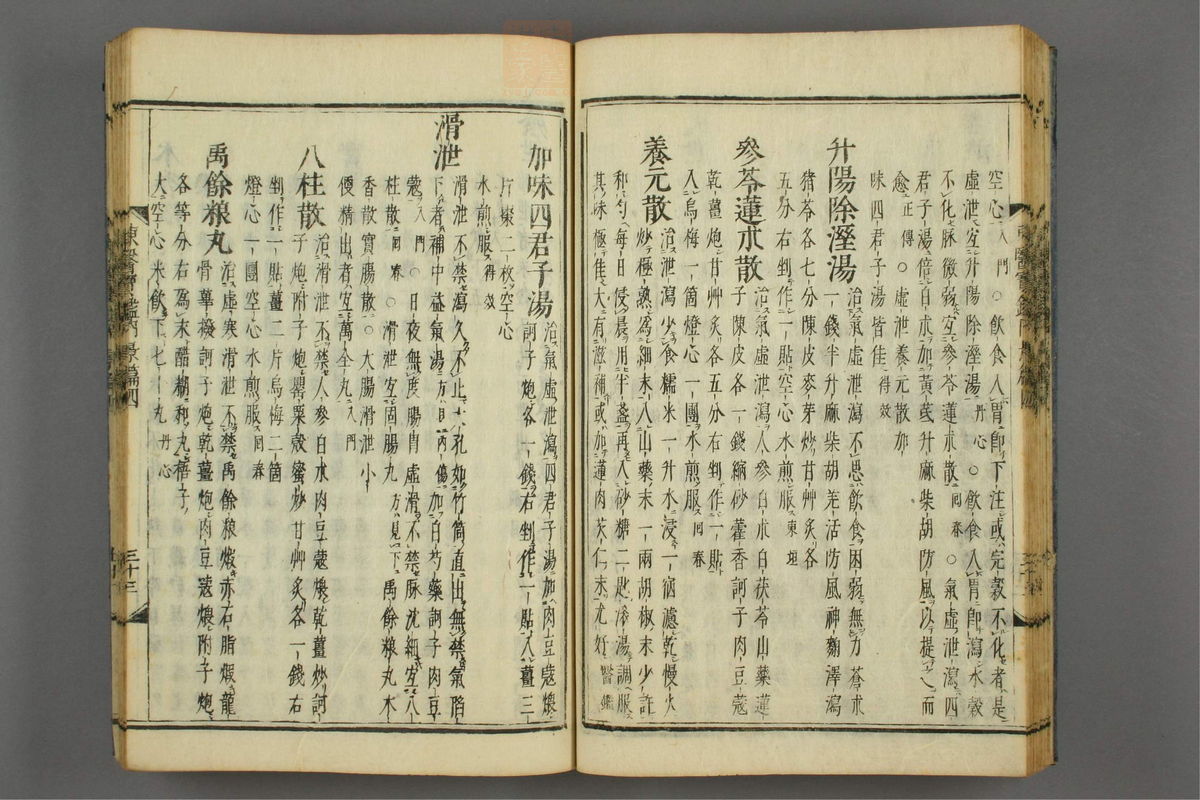 空心入門○飮食入胃卽下注或完穀不化者是
虛泄宜升陽除溼湯丹心○飮食入胃卽瀉水穀
不化脉微弱宜參苓蓮朮散回春○氣虛泄瀉四
君子湯倍白朮加黃芪升麻柴胡防風以提之而
愈正傳○虛泄養元散加
味四君子湯皆佳得效
升陽除溼湯治氣虛泄瀉不思飮食困弱無力蒼朮
一錢半升麻柴胡羌活防風神麴澤瀉
猪苓各七分陳皮麥芽炒甘艸炙各
五分右剉作一貼空心水煎服東垣
參苓蓮朮散治氣虛泄瀉人參白朮白茯苓山藥蓮
子陳皮各一錢縮砂藿香訶子肉豆蔲
乾薑炮甘艸炙各五分右剉作一貼
入烏梅一箇燈心一團水煎服回春
養元散治泄瀉少食糯米一升水浸一宿濾乾慢火
炒極熟爲細末入山藥末一兩胡椒末少許
和勻每日侵晨用半盞再入砂糖二匙滚湯調服
其味極佳大有滋補或加蓮肉芡仁末尤好醫鑑
加味四君子湯治氣虛泄瀉四君子湯加肉豆蔲煨
訶子炮各一錢右剉作一貼入薑三
片棗二枚空心
水煎服得效
滑泄
滑泄不禁瀉久不止大孔如竹筒直出無禁氣陷
下者補中益氣湯方見內傷加白芍藥訶子肉豆
蔲入門○日夜無度腸胃虛滑不禁脉沈細宜八
桂散回春○滑泄宜固腸丸方見下禹餘粮丸木
香散實腸散○大腸滑泄小
便精出者宜萬全丸入門
八桂散治滑泄不禁人參白朮肉豆蔲煨乾薑炒訶
子炮附子炮罌粟殼蜜炒甘艸炙各一錢右
剉作一貼薑二片烏梅二箇
燈心一團空心水煎服回春
禹餘粮丸治虛寒滑泄不禁禹餘粮煅赤石脂煆龍
骨蓽撥訶子炮乾薑炮肉豆蔲煨附子炮
各等分右爲末醋糊和丸梧子
大空心米飮下七十丸丹心
東醫寶鑑內景篇四
三十三